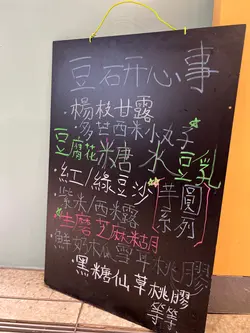 豆研开心事
·楊枝甘露
·多芒西米小丸子
豆腐花 糖水 豆乳
·紅/綠豆沙
芋圓系列
·紫米/西米露
·生磨芝麻糊
·鮮奶木瓜雪耳桃膠
·黑糖仙草桃膠
等等